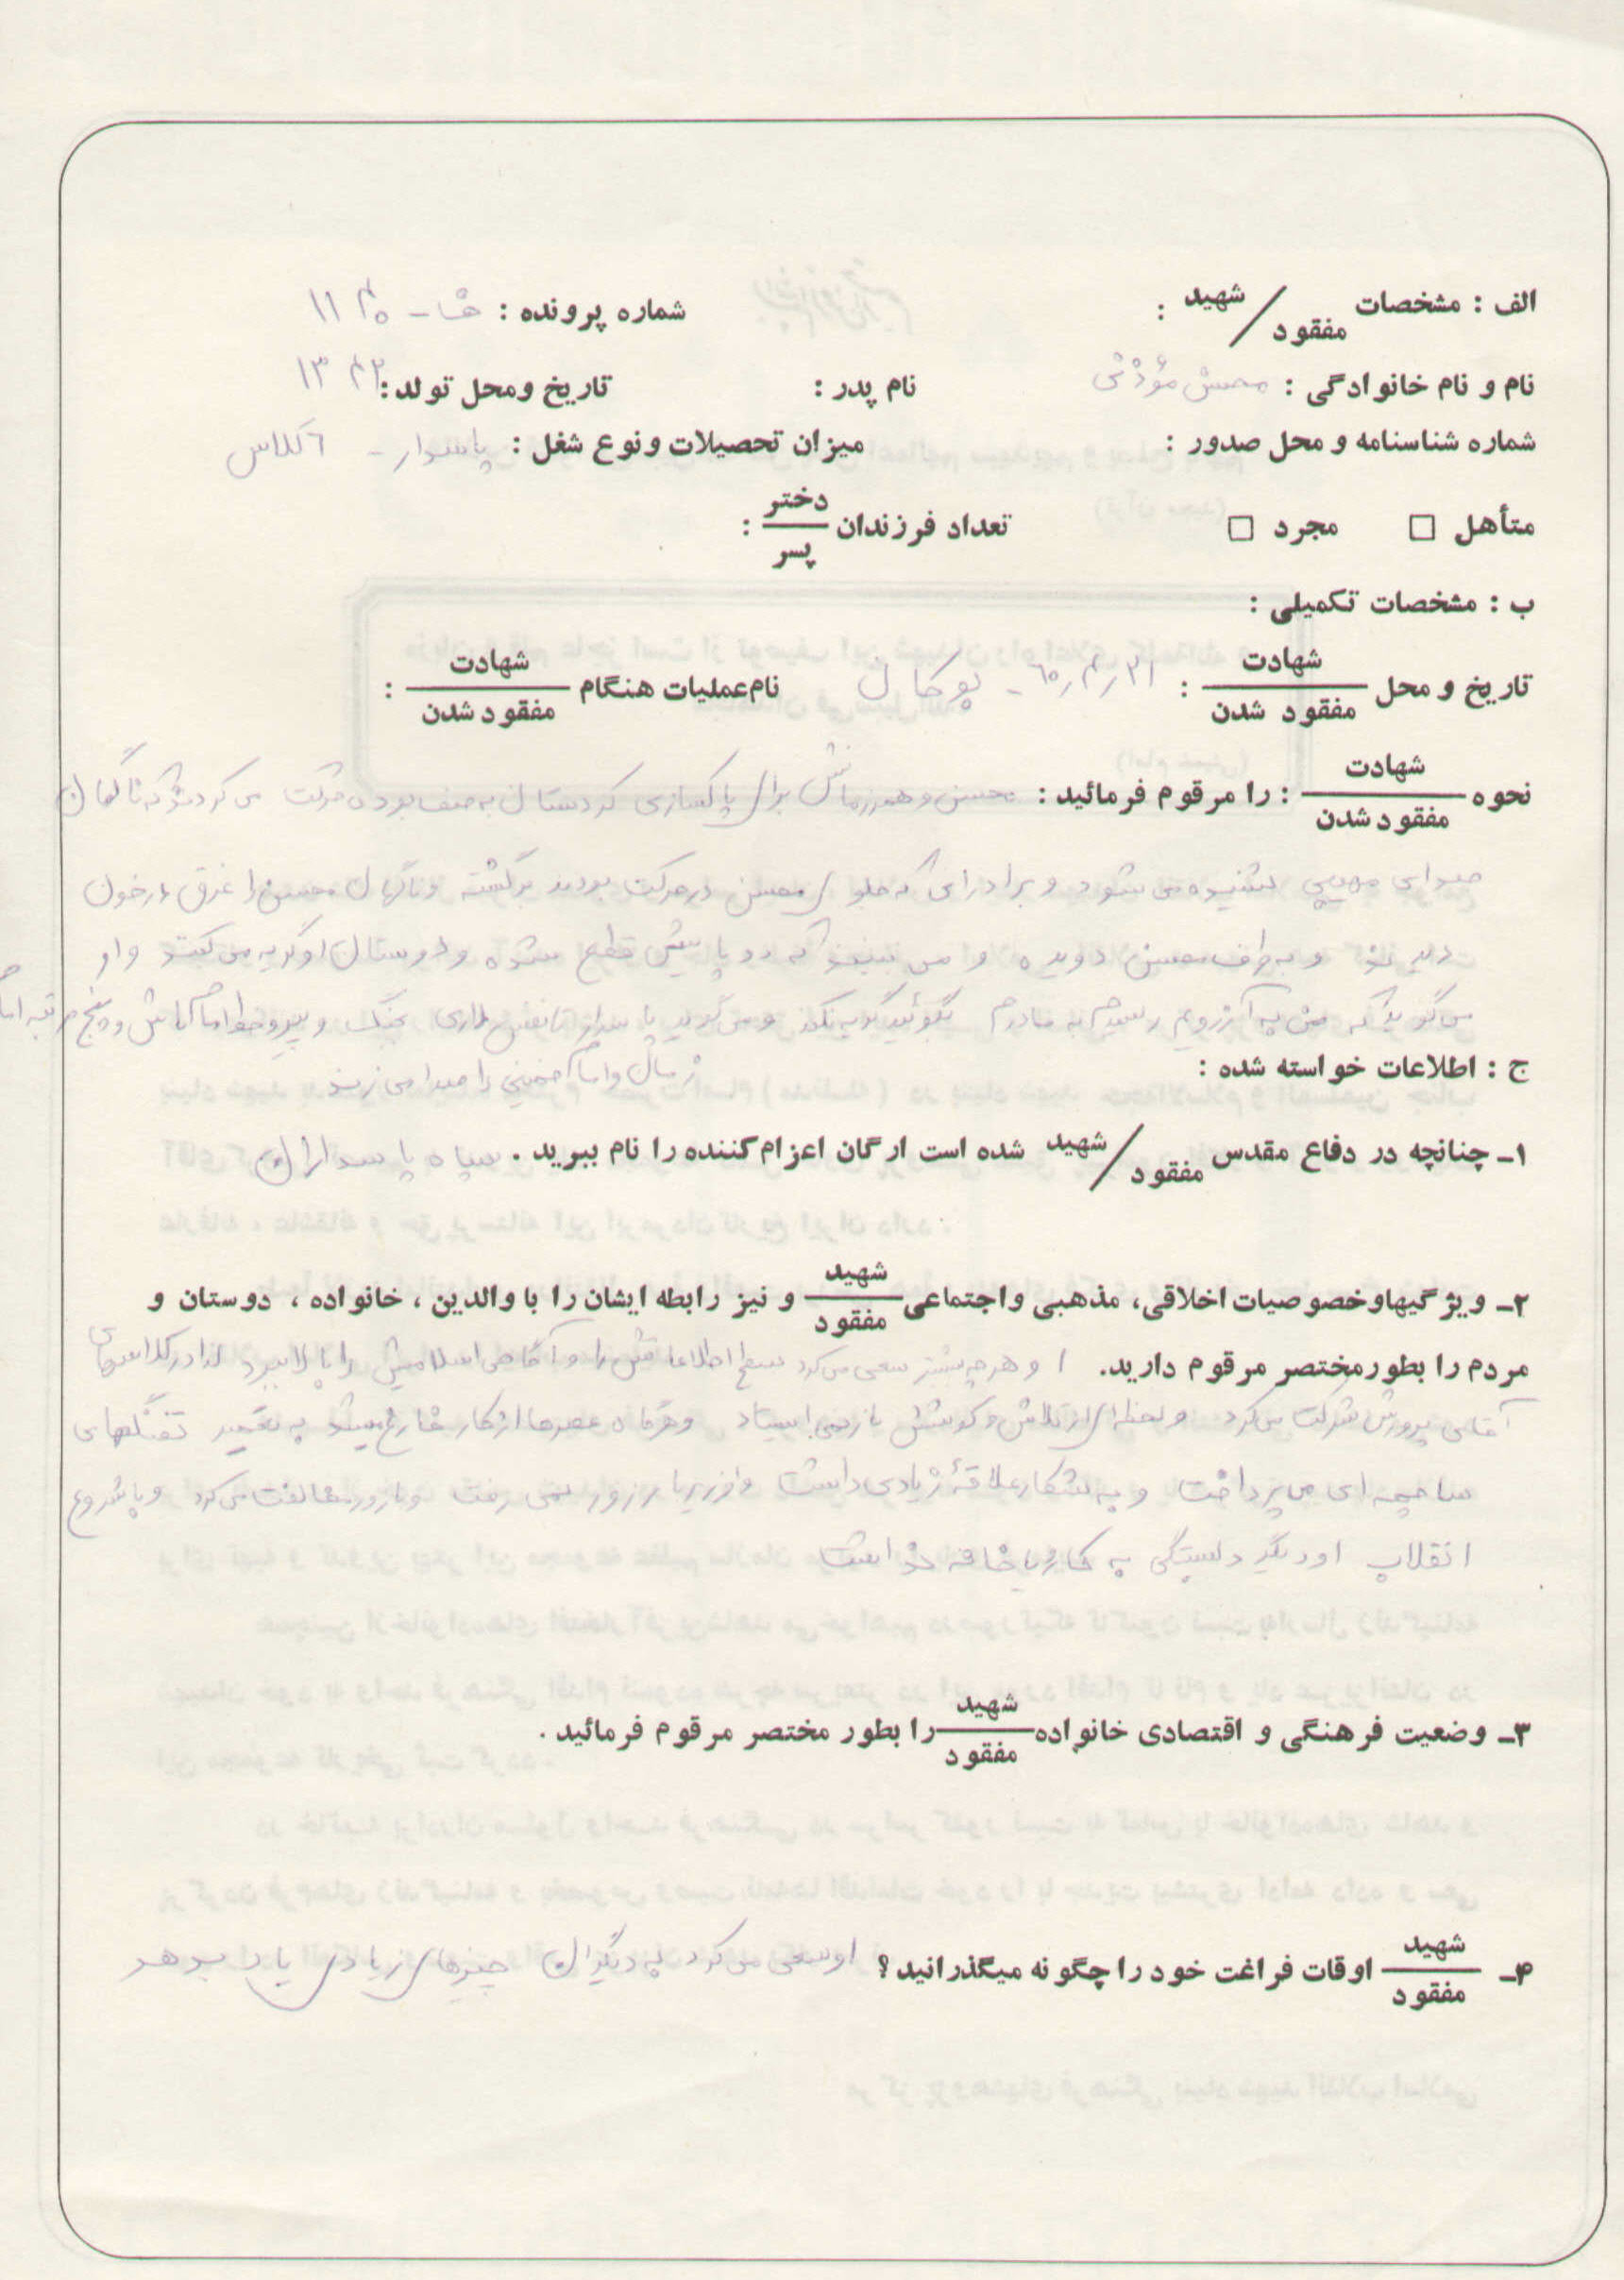 الف : مشخصات شهید / مفقود :
شماره پرونده :
نام و نام خانوادگی : محسن مؤذنی
نام پدر :
تاریخ ومحل تولد : ۱۳۴۲
شماره شناسنامه و محل صدور :
میزان تحصیلات ونوع شغل : پاسدار - ٦ کلاس
متأهل □ مجرد □ تعداد فرزندان دختر / پسر :
ب : مشخصات تکمیلی :
تاریخ و محل شهادت / مفقود شدن : ۳۱٫۴٫٦۰ -
نام عملیات هنگام شهادت / مفقود شدن :
نحوه شهادت / مفقود شدن : را مرقوم فرمائید : محسن و همرزمانش برای پاکسازی کردستان به صف بوده حرکت می کردند که ناگهان
صدای مهیبی شنیده می شود و برادرانی که جلوی محسن در حرکت بودند برگشته و ناگهان محسن را غرق در خون
دیدند و به طرف محسن دویده و می بینند که دو پایش قطع شده و دوستان او گریه می کنند و او
می گوید که من به آرزویم رسیدم به مادرم بگوئید گریه نکند و می گوید پاسدار تا نفس داری بجنگ و پیرو خط امام باش و پنج مرتبه امام
زمان و امام خمینی را صدا می زند
ج : اطلاعات خواسته شده :
۱ـ چنانچه در دفاع مقدس شهید / مفقود شده است ارگان اعزام کننده را نام ببرید . سپاه پاسداران
۲ـ ویژگیهاوخصوصیات اخلاقی، مذهبی واجتماعی شهید / مفقود و نیز رابطه ایشان را با والدین ، خانواده ، دوستان و
مردم را بطورمختصر مرقوم دارید. او هر چه بیشتر سعی می کرد سطح اطلاعاتش را و آگاهی اسلامیش را بالا ببرد لذا در کلاسهای
آقای پرورش شرکت می کرد و لحظه ای از تلاش و کوشش باز نمی ایستاد و هرگاه عصرها از کار خارج میشد به تعمیر تفنگهای
ساچمه ای می پرداخت و به شکار علاقهٔ زیادی داشت و از زیر بار زور نمی رفت و با زور مخالفت می کرد و با شروع
انقلاب او دیگر دلبستگی به کارباخانه نداشت
۳ـ وضعیت فرهنگی و اقتصادی خانواده شهید / مفقود را بطور مختصر مرقوم فرمائید .
۴ـ شهید / مفقود اوقات فراغت خود را چگونه میگذرانید ؟ او سعی می کرد به دیگران چیزهای زیادی یاد بدهد